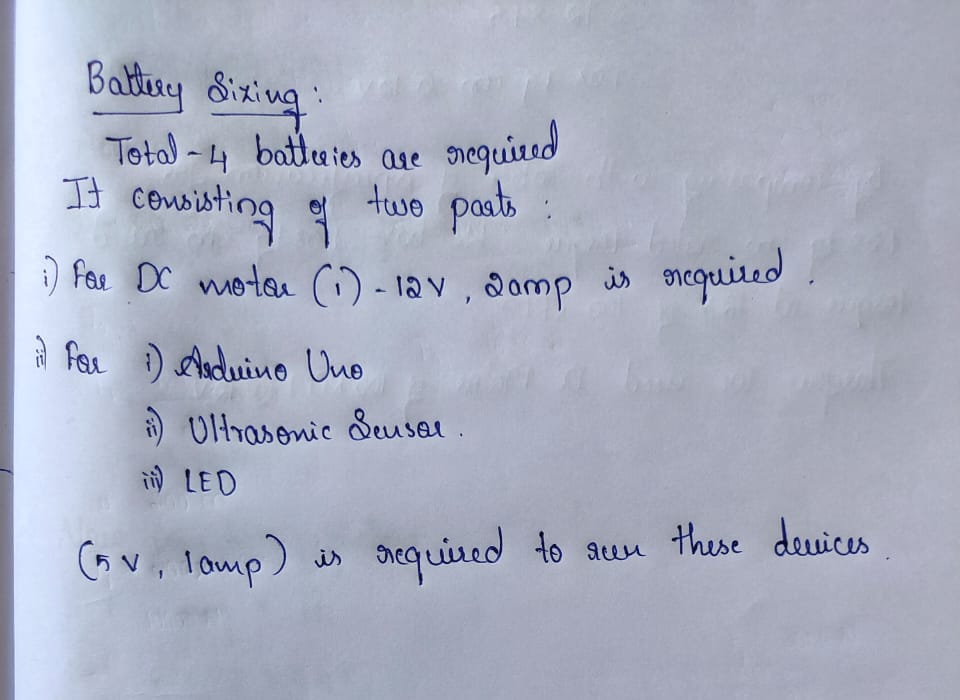 Battery Sizing :
Total - 4 batteries are required
It consisting of two parts :
i) For DC motor (1) - 12V , 2amp is required .
ii) For i) Arduino Uno
ii) Ultrasonic Sensor .
iii) LED
(5V , 1amp) is required to run these devices .